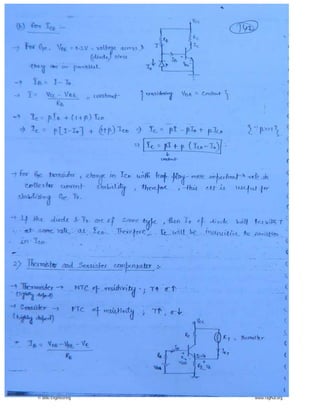 (b) For Ico :-
142
→ For Ge, VBE = 0.2V = voltage across
(diode) since
they are in parallel.
→ IB = I - Io
→ I = VCC - VBE / RB , constant { considering VBE = Constant }
→ Ic = βIB + (1+β) Ico
→ Ic = β[I-Io] + (1+β) Ico → Ic = βI - βIo + βIco {∵ β>>1}
Ic = βI + β (Ico - Io)
constant
→ For Ge transistor, change in Ico with temp play more important role in
collector current stability, therefore, this ckt is useful for
stabilizing Ge Tr.
→ If the diode & Tr are of same type, then Io of diode will ↑es with T
at same rate as Ico. Therefore, Ic will be insensitive to variation
in Ico.
2) Thermistor and Sensistor compensation :-
→ Thermistor → NTC of resistivity ; T↑ σ↑
(lightly doped)
→ Sensistor → PTC of resistivity ; T↑, σ↓
(highly doped)
VCC
RT
RB